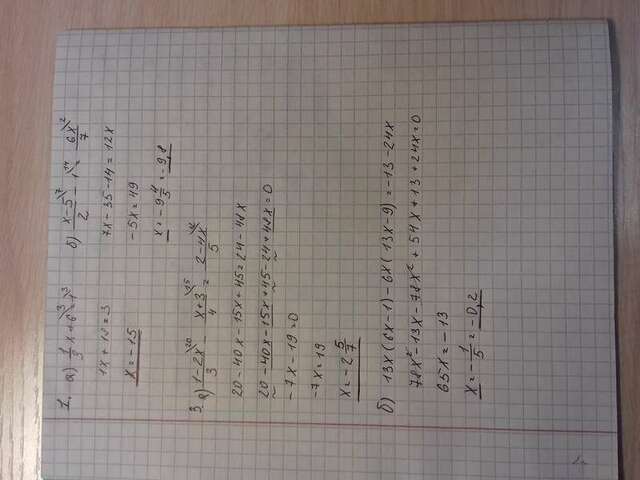 1. а) 1/3 x + 6 \3 = 1 \3
1x + 18 = 3
x = -15
б) x-5/2 \7 - 1 \14 = 6x/7 \2
7x - 35 - 14 = 12x
-5x = 49
x = -9 4/5 = -9,8
3. а) 1-2x/3 \20 - x+3/4 \15 = 2-4x/5 \12
20 - 40x - 15x + 45 = 24 - 48x
20 - 40x - 15x + 45 - 24 + 48x = 0
-7x - 19 = 0
-7x = 19
x = -2 5/7
б) 13x (6x - 1) - 6x (13x - 9) = -13 - 24x
78x² - 13x - 78x² + 54x + 13 + 24x = 0
65x = -13
x = - 1/5 = -0,2